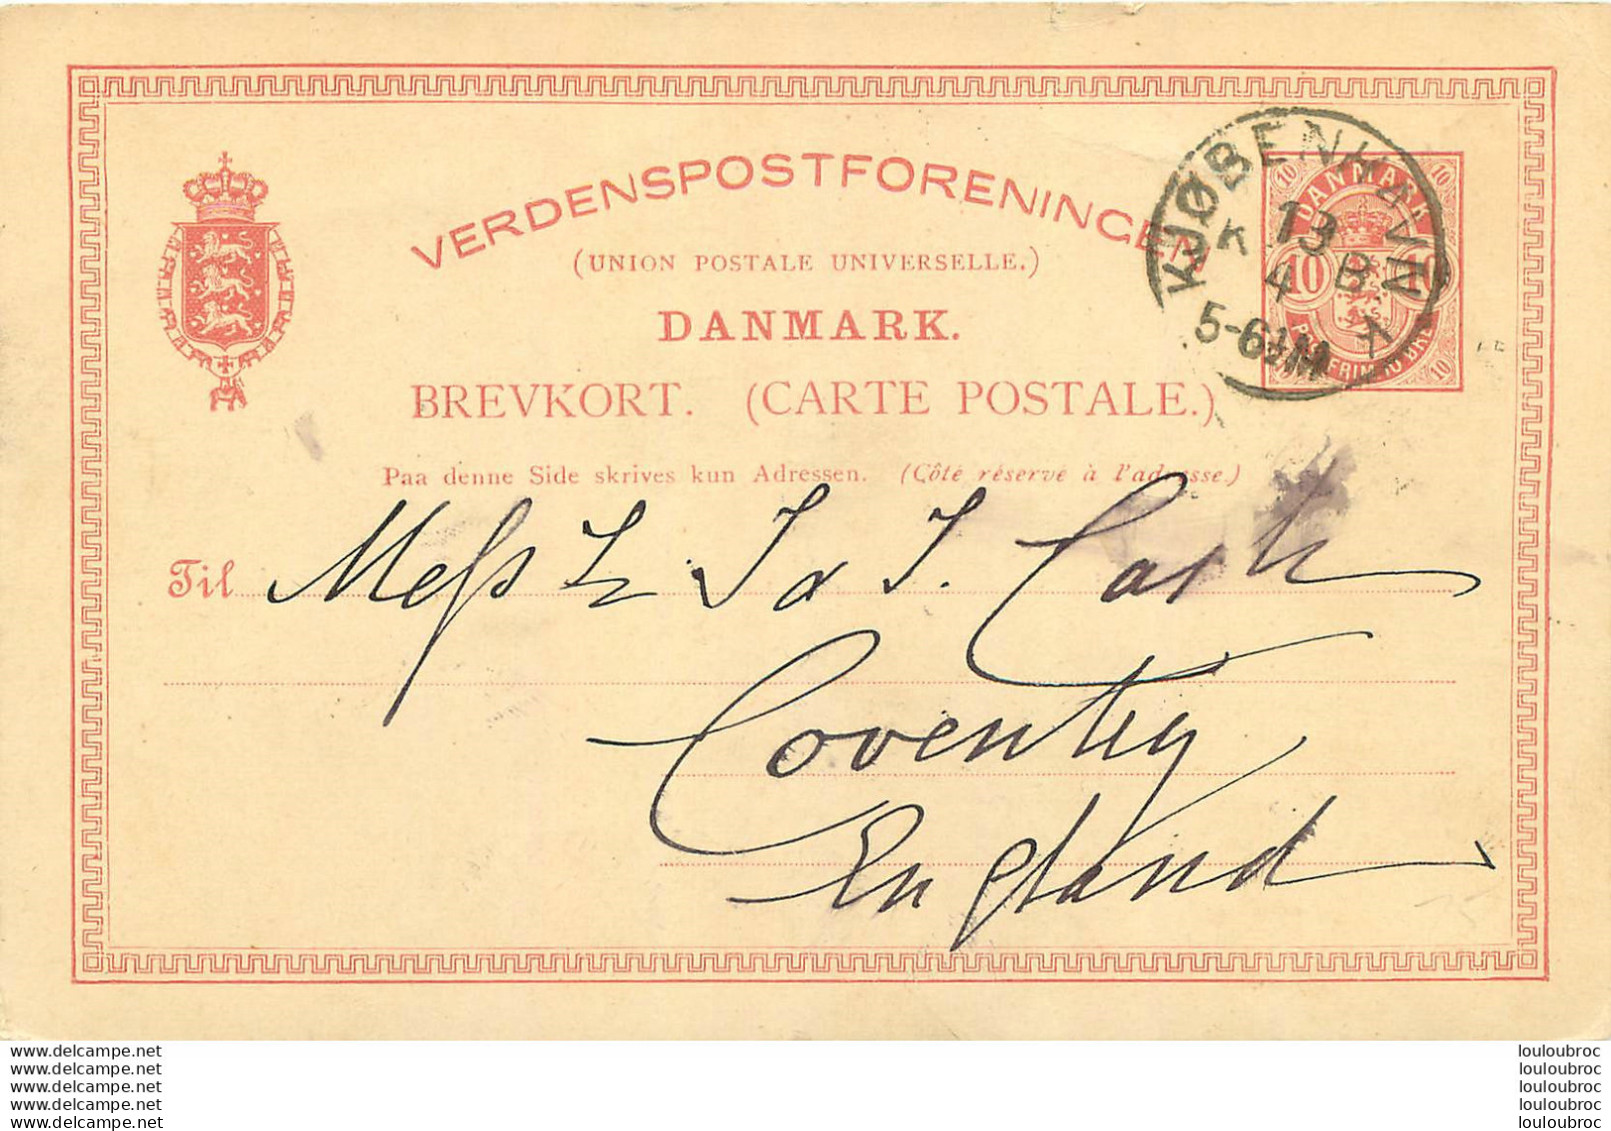 VERDENSPOSTFORENINGEN
(UNION POSTALE UNIVERSELLE.)
DANMARK.
BREVKORT. (CARTE POSTALE.)
Paa denne Side skrives kun Adressen. (Côté réservé à l'adresse.)
KJØBENHAVN
K 13 B.
4
5-6½M
DANMARK
10 10
10 10
FRIM. 10 ØRE
10 10
Til Mess L. J & J. Cash
Coventry
England
www.delcampe.net
www.delcampe.net
www.delcampe.net
www.delcampe.net
www.delcampe.net
louloubroc
louloubroc
louloubroc
louloubroc
louloubroc